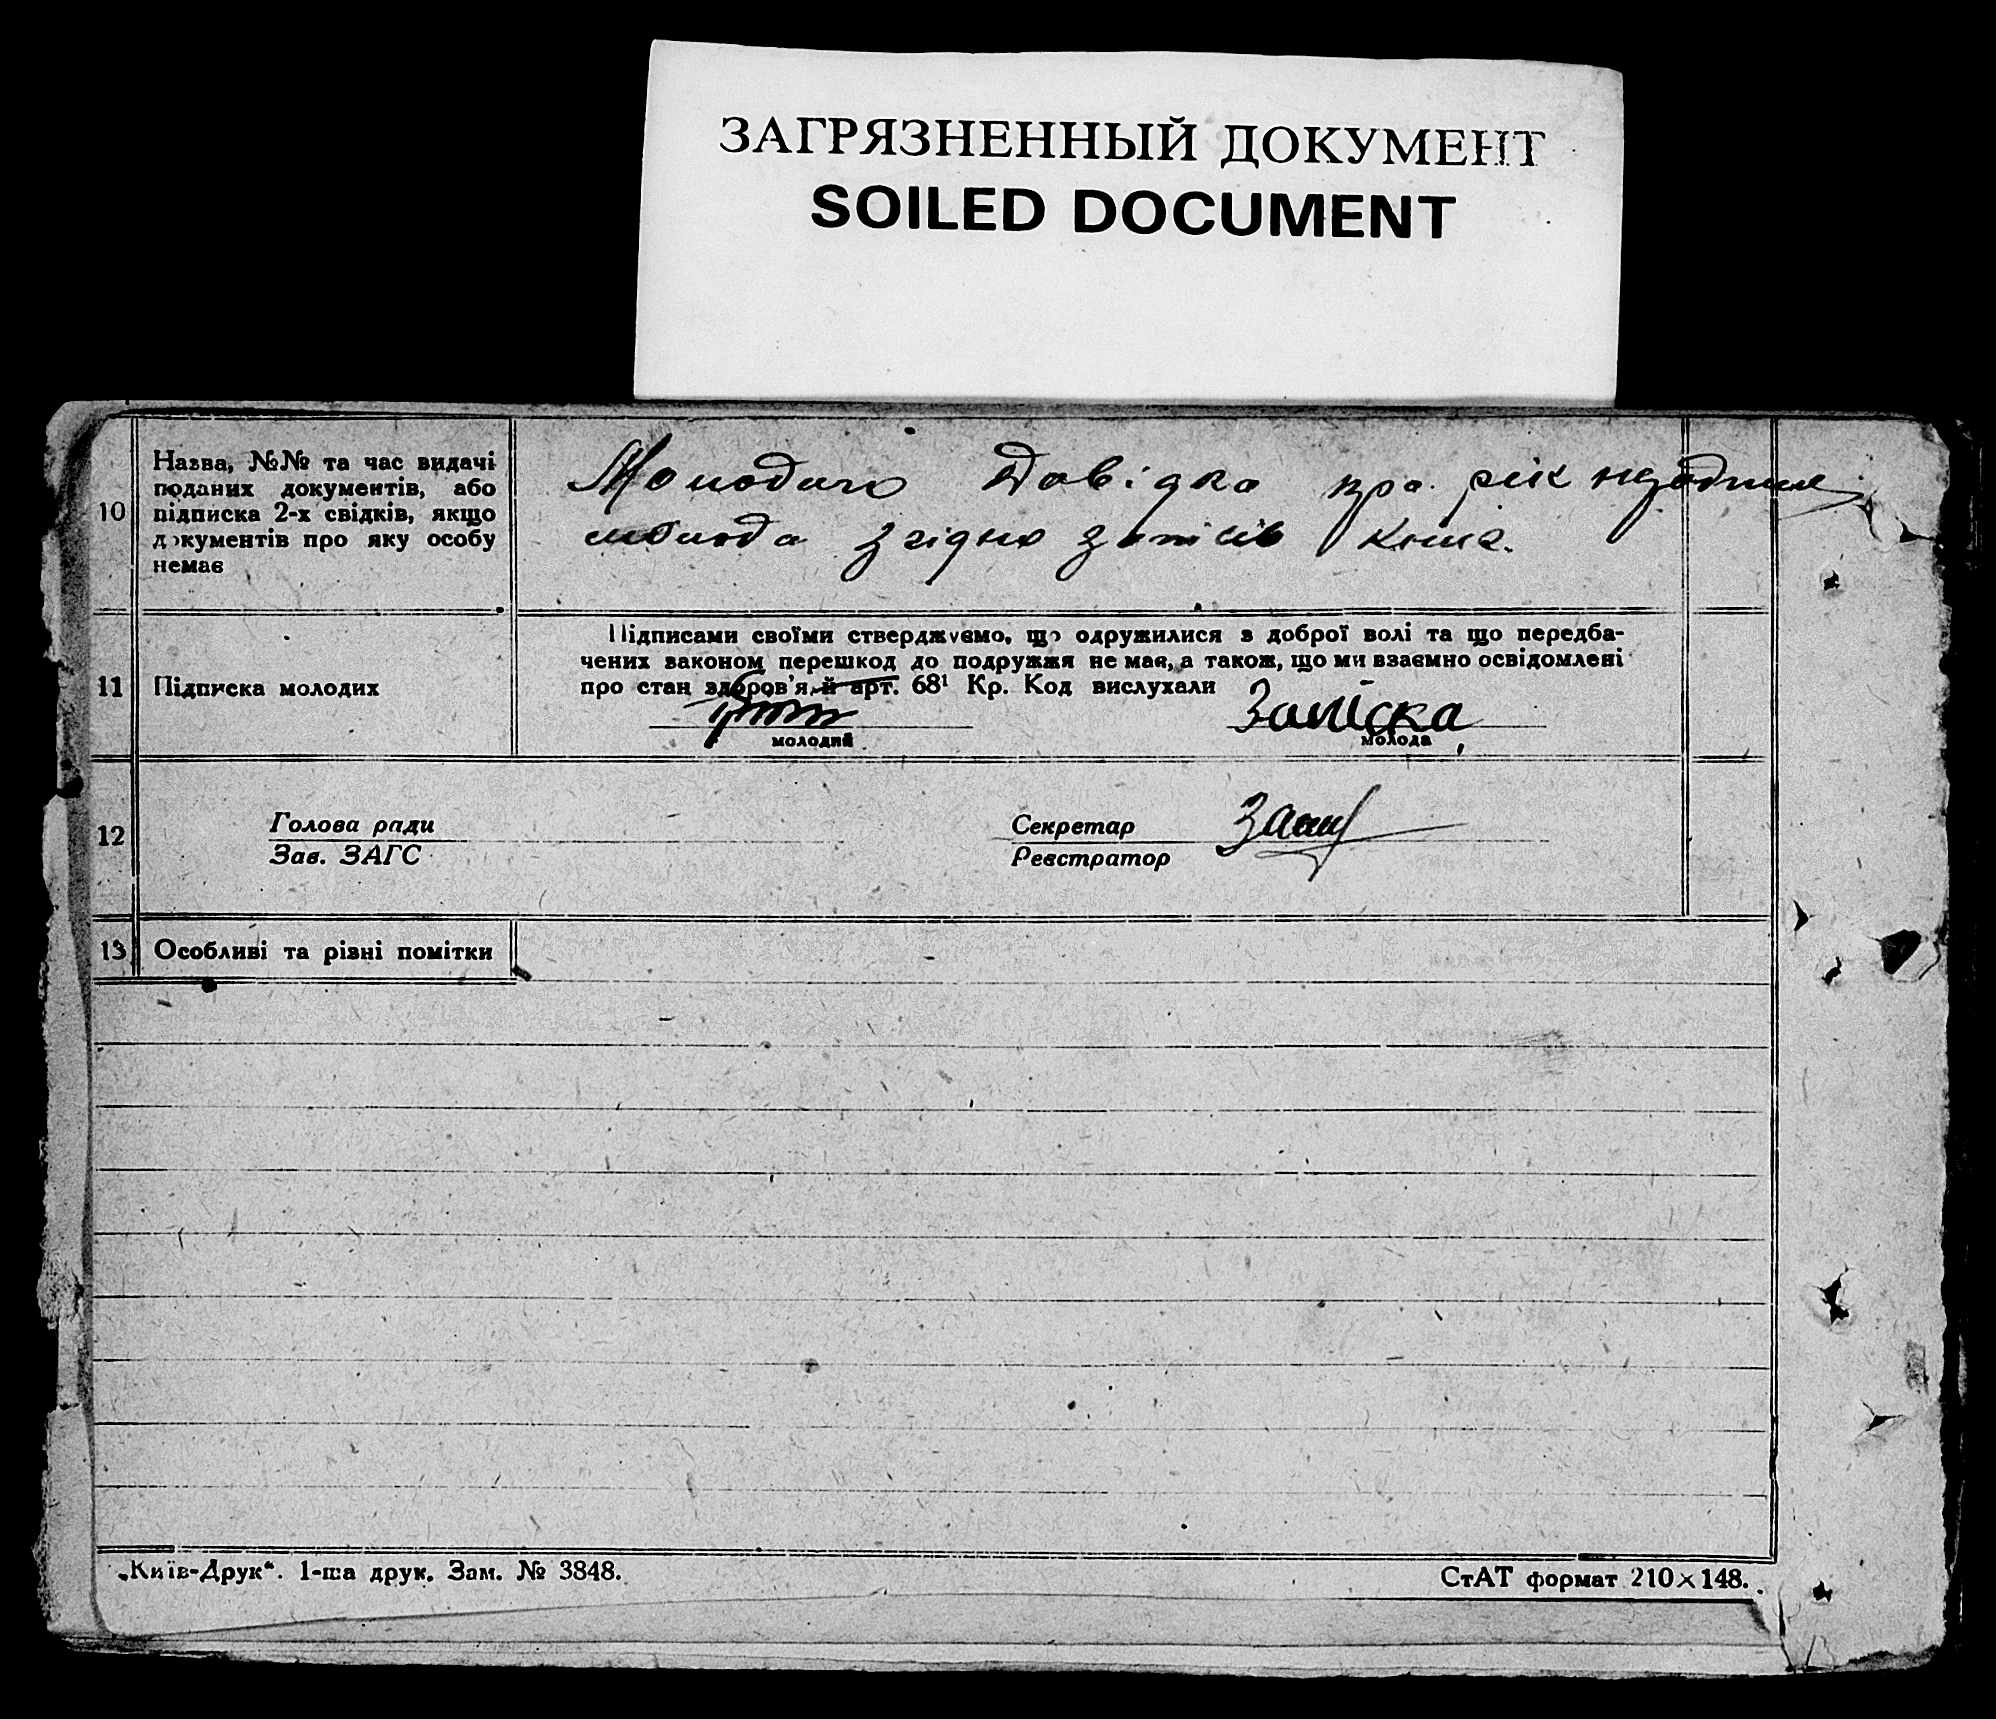 ЗАГРЯЗНЕННЫЙ ДОКУМЕНТ
SOILED DOCUMENT
10
Назва, №№ та час видачі
поданих документів, або
підписка 2-х свідків, якщо
документів про яку особу
немає
Молодого Довідка про рік
молода згідно записів книг.
11
Підписка молодих
Підписами своїми стверджуємо, що одружилися з доброї волі та що передба-
чених законом перешкод до подружжя не має, а також, що ми взаємно освідомлені
про стан здоров'я, й арт. 68¹ Кр. Код вислухали
молодий
молода
12
Голова ради
Зав. ЗАГС
Секретар
Реєстратор
13
Особливі та різні помітки
„Київ-Друк“. 1-ша друк. Зам. № 3848.
СтАТ формат 210×148.